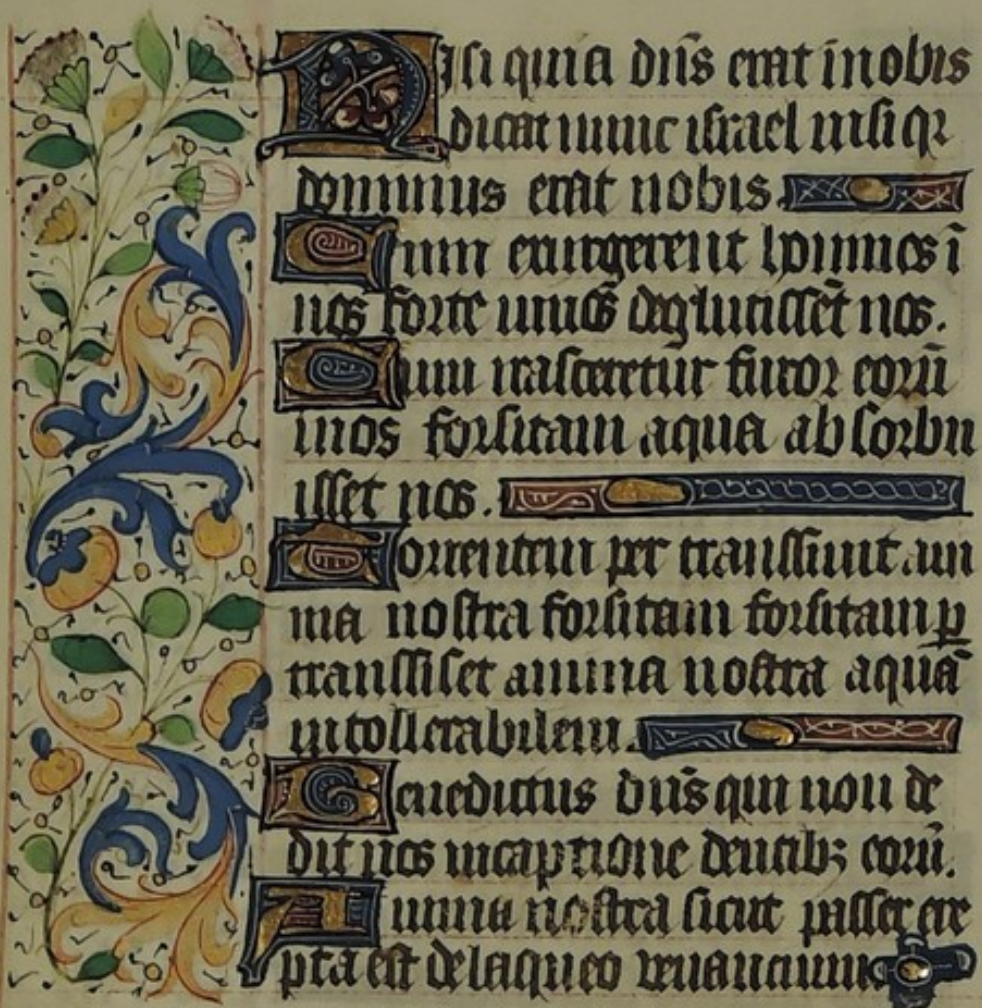 Nisi quia dn̄s erat in nobis
dicat nunc israel nisi qr
dominus erat nobis.
Cum exurgerent homines ī
nos forte uiuos deglutissēt nos.
Cum irasceretur furor eorū
in nos forsitam aqua absorbu
isset nos.
Torrentem per transsiuit ani
ma nostra forsitam forsitam p̱
transsisset anima nostra aquā
intollerabilem.
Benedictus dn̄s qui non de
dit nos in captione dentibꝫ eorū.
Anima nostra sicut passer ere
pta est de laqueo uenancium